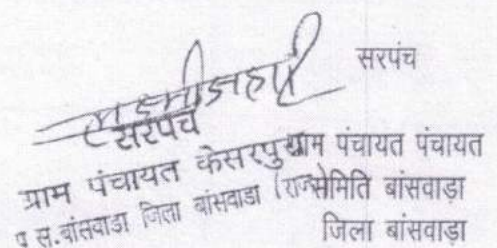 सरपंच
सरपंच
ग्राम पंचायत केसरपुरा
प स.बांसवाडा जिला बांसवाडा (राज
ग्राम पंचायत पंचायत
समिति बांसवाड़ा
जिला बांसवाड़ा